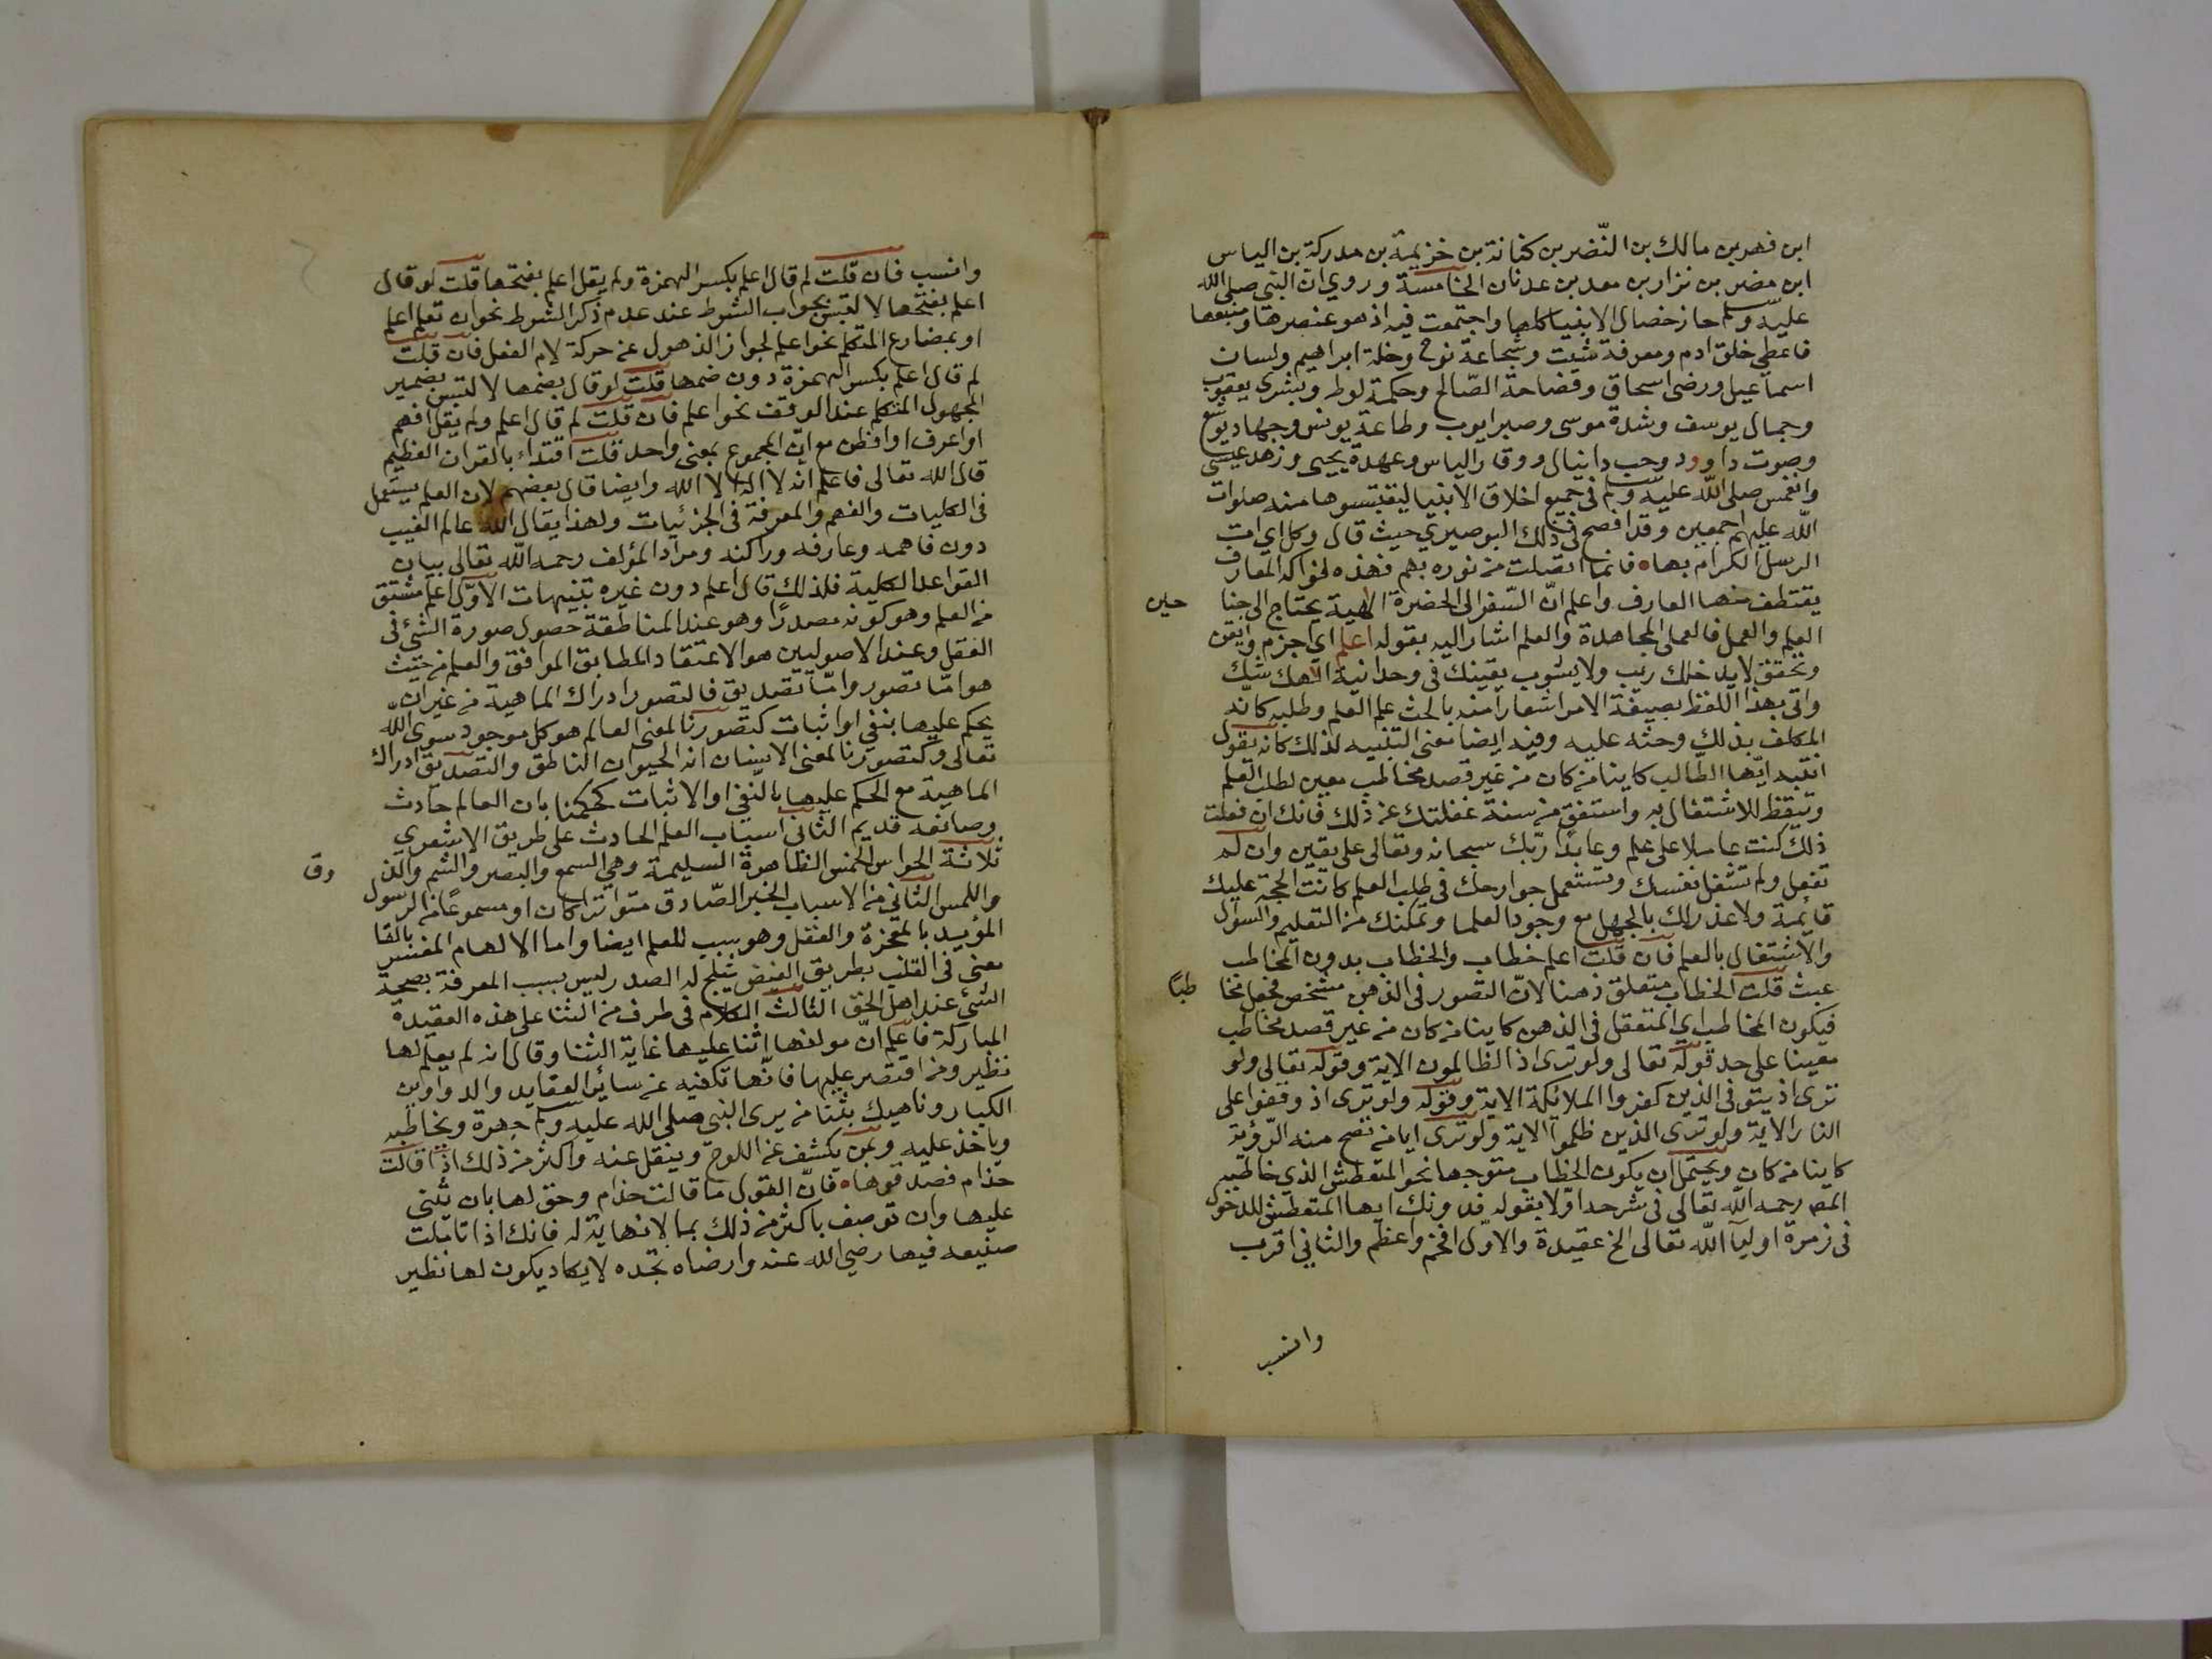 ابن فهر بن مالك بن النّضر بن كنانة بن خزيمة بن مدركة بن الياس
ابن مضر بن نزار بن معد بن عدنان الخامسة وروي ان النبي صلى الله
عليه وسلم حاز خصال الانبيا كلها واجتمعت فيه اذ هو عنصرها ومنبعها
فاعطي خلق ادم ومعرفة شيت وشجاعة نوح وخلة ابراهيم ولسان
اسماعيل ورضى اسحاق وفصاحة الصّالح وحكمة لوط وبشرى يعقوب
وجمال يوسف وشدة موسى وصبر ايوب وطاعة يونس وجهاد يوشع
وصوت داوود وحب دانيال ووقار الياس وعهدة يحيى وزهد عيسى
وانغمس صلى الله عليه وسلم في جميع اخلاق الانبيا ليقتبسوها منه صلوات
الله عليهم اجمعين وقد افصح في ذلك البوصيري حيث قال وكل اي اتت
الرسل الكرام بها • فانما اتصلت من نوره بهم فهذه لفواكه المعارف
يقتطف منها العارف واعلم انّ السّفر الى الحضرة الالهية يحتاج الى جنا حين
العلم والعمل فالعمل المجاهدة والعلم اشار اليه بقوله اعلم اي اجزم وايقن
وتحقق لا يدخلك ريب ولا يشوب يقينك في وحدانية الاهك شك
واتى بهذا اللفظ بصيغة الامر اشعارا منه بالحث على العلم وطلبه كانّه
المكلف بذلك وحثه عليه وفيه ايضا معنى التنبيه لذلك كانه يقول
انتبه ايّها الطّالب كاينا من كان من غير قصد مخاطب معين لطلب العلم
وتيقظ للاشتغال به واستفق من سنة غفلتك عن ذلك فانك ان فعلت
ذلك كنت عاملا على علم وعابدا ربّك سبحانه وتعالى على يقين وان لم
تفعل ولم تشغل نفسك وتستعمل جوارحك في طلب العلم كانت الحجة عليك
قائمة ولا عذر لك بالجهل مع وجود العلما وتمكنك من التعليم والسؤال
والاشتغال بالعلم فان قلت اعلم خطاب والخطاب بدون المخاطب
عبث قلت الخطاب متعلق ذهنا لانّ التصور في الذهن مشخص فجعل مخا طبًا
فيكون المخاطب اي المتعقل في الذهن كاينا من كان من غير قصد مخاطب
معينا على حد قوله تعالى ولو ترى اذ الظالمون الاية وقوله تعالى ولو
ترى اذ يتوفى الذين كفروا الملائكة الاية وقوله ولو ترى اذ وقفوا على
النار الاية ولو ترى الذين ظلموا الاية ولو ترى ايا من تصح منه الرّؤية
كاينا من كان ويحتمل ان يكون الخطاب متوجها نحو المتعطش الذي خاطبه
المص رحمه الله تعالى في شرحه اولا بقوله فدونك ايها المتعطش للدخول
في زمرة اوليآ الله تعالى الخ عقيدة والاوّل افخم واعظم والثاني اقرب
وانسب
وانسب فان قلت لم قال اعلم بكسر الهمزة ولم يقل اعلم بفتحها قلت لو قال
اعلم بفتحها لالتبس بجواب الشرط عند عدم ذكر الشرط نحو ان تعلم اعلم
او بمضارع المتكلم نحو اعلم لجواز الذهول عن حركة لام الفعل فان قلت
لم قال اعلم بكسر الهمزة دون ضمها قلت لو قال بضمها لالتبس بضمير
المجهول المتكلم عند الوقف نحو اعلم فان قلت لم قال اعلم ولم يقل افهم
او اعرف او افطن مع انّ المجموع بمعنى واحد قلت اقتداء بالقران العظيم
قال الله تعالى فاعلم انه لا اله الا الله وايضا قال بعضهم لان العلم يستعمل
في الكليات والفهم والمعرفة في الجزئيات ولهذا يقال الله عالم الغيب
دون فاهمه وعارفه وراكنه ومراد المؤلف رحمه الله تعالى بيان
القواعد الكلية فلذلك قال اعلم دون غيره تنبيهات الاوّل اعلم مشتق
من العلم وهو كونه مصدرًا وهو عند المناطقة حصول صورة الشيء في
العقل وعند الاصوليين هو الاعتقاد المطابق الموافق والعلم من حيث
هو امّا تصور وامّا تصديق فالتصور ادراك الماهية من غير ان
يحكم عليها بنفي او اثبات كتصورنا لمعنى العالم هو كل موجود سوى الله
تعالى وكتصورنا لمعنى الانسان انه الحيوان الناطق والتصديق ادراك
الماهية مع الحكم عليها بالنّفي او الاثبات كحكمنا بان العالم حادث
وصانعه قديم الثاني اسباب العلم الحادث على طريق الاشعري
ثلاثة الحواس الخمس الظاهرة السليمة وهي السمع والبصر والشم والذ وق
واللمس الثاني من الاسباب الخبر الصّادق متواترا كان او مسموعًا من الرسول
المؤيد بالمعجزة والعقل وهو سبب للعلم ايضا واما الالهام المفسر بالقا
معنى في القلب بطريق الفيض يثلج له الصدر ليس بسبب المعرفة بصحة
الشيء عند اهل الحق الثالث الكلام في طرف من الثنا على هذه العقيدة
المباركة فاعلم انّ مولفها اثنا عليها غاية الثنا وقال انه لم يعلم لها
نظير ومن اقتصر عليها فانّها تكفيه عن سائر العقايد والدواوين
الكبار وناهيك بثنا من يرى النبي صلى الله عليه وسلم جهرة ويخاطبه
وياخذ عليه وبمن يكشف عن اللوح وينقل عنه واكثر من ذلك اذا قالت
حذام فصدقوها • فانّ القول ما قالت حذام وحق لها بان يثنى
عليها وان توصف باكثر من ذلك بما لا نهاية له فانك اذا تاملت
صنيعه فيها رضي الله عنه وارضاه تجده لا يكاد يكون لها نظير